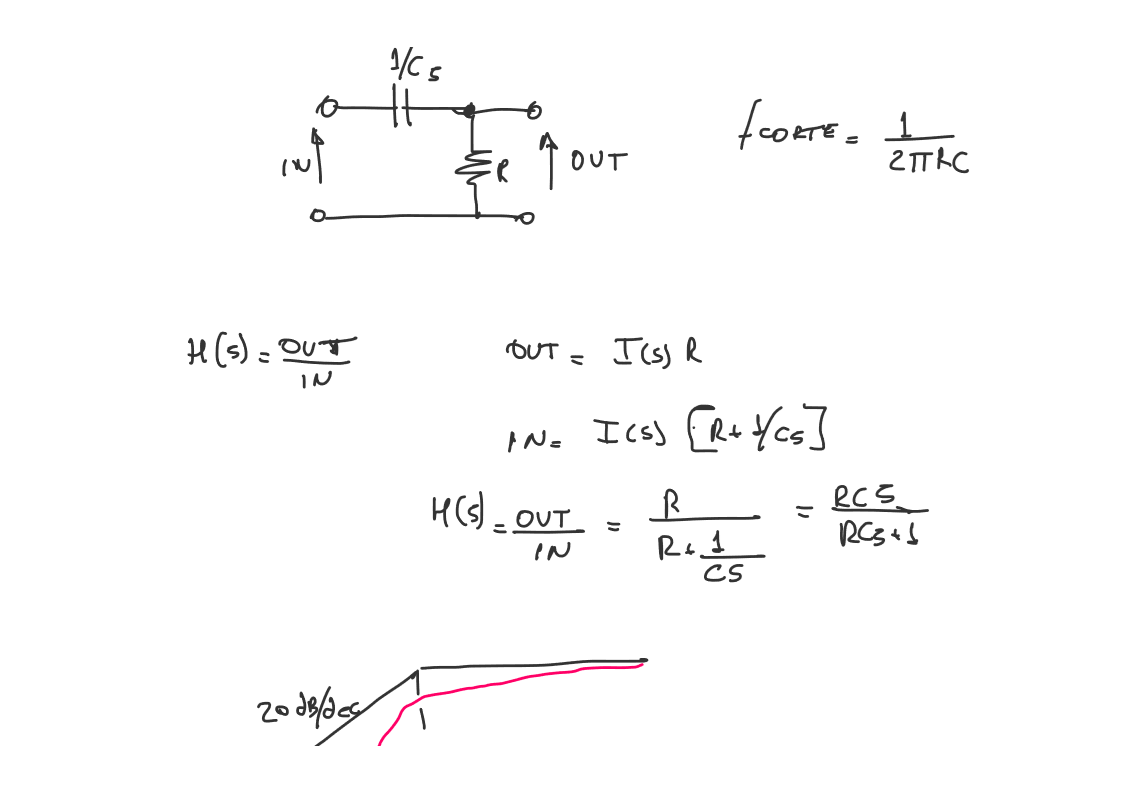 1/CS
IN
R
OUT
fCORTE = 1/2πRC
H(s) = OUT/IN
OUT = I(s) R
IN = I(s) [R + 1/CS]
H(s) = OUT/IN = R/(R + 1/CS) = RCS/(RCS + 1)
20 dB/dec